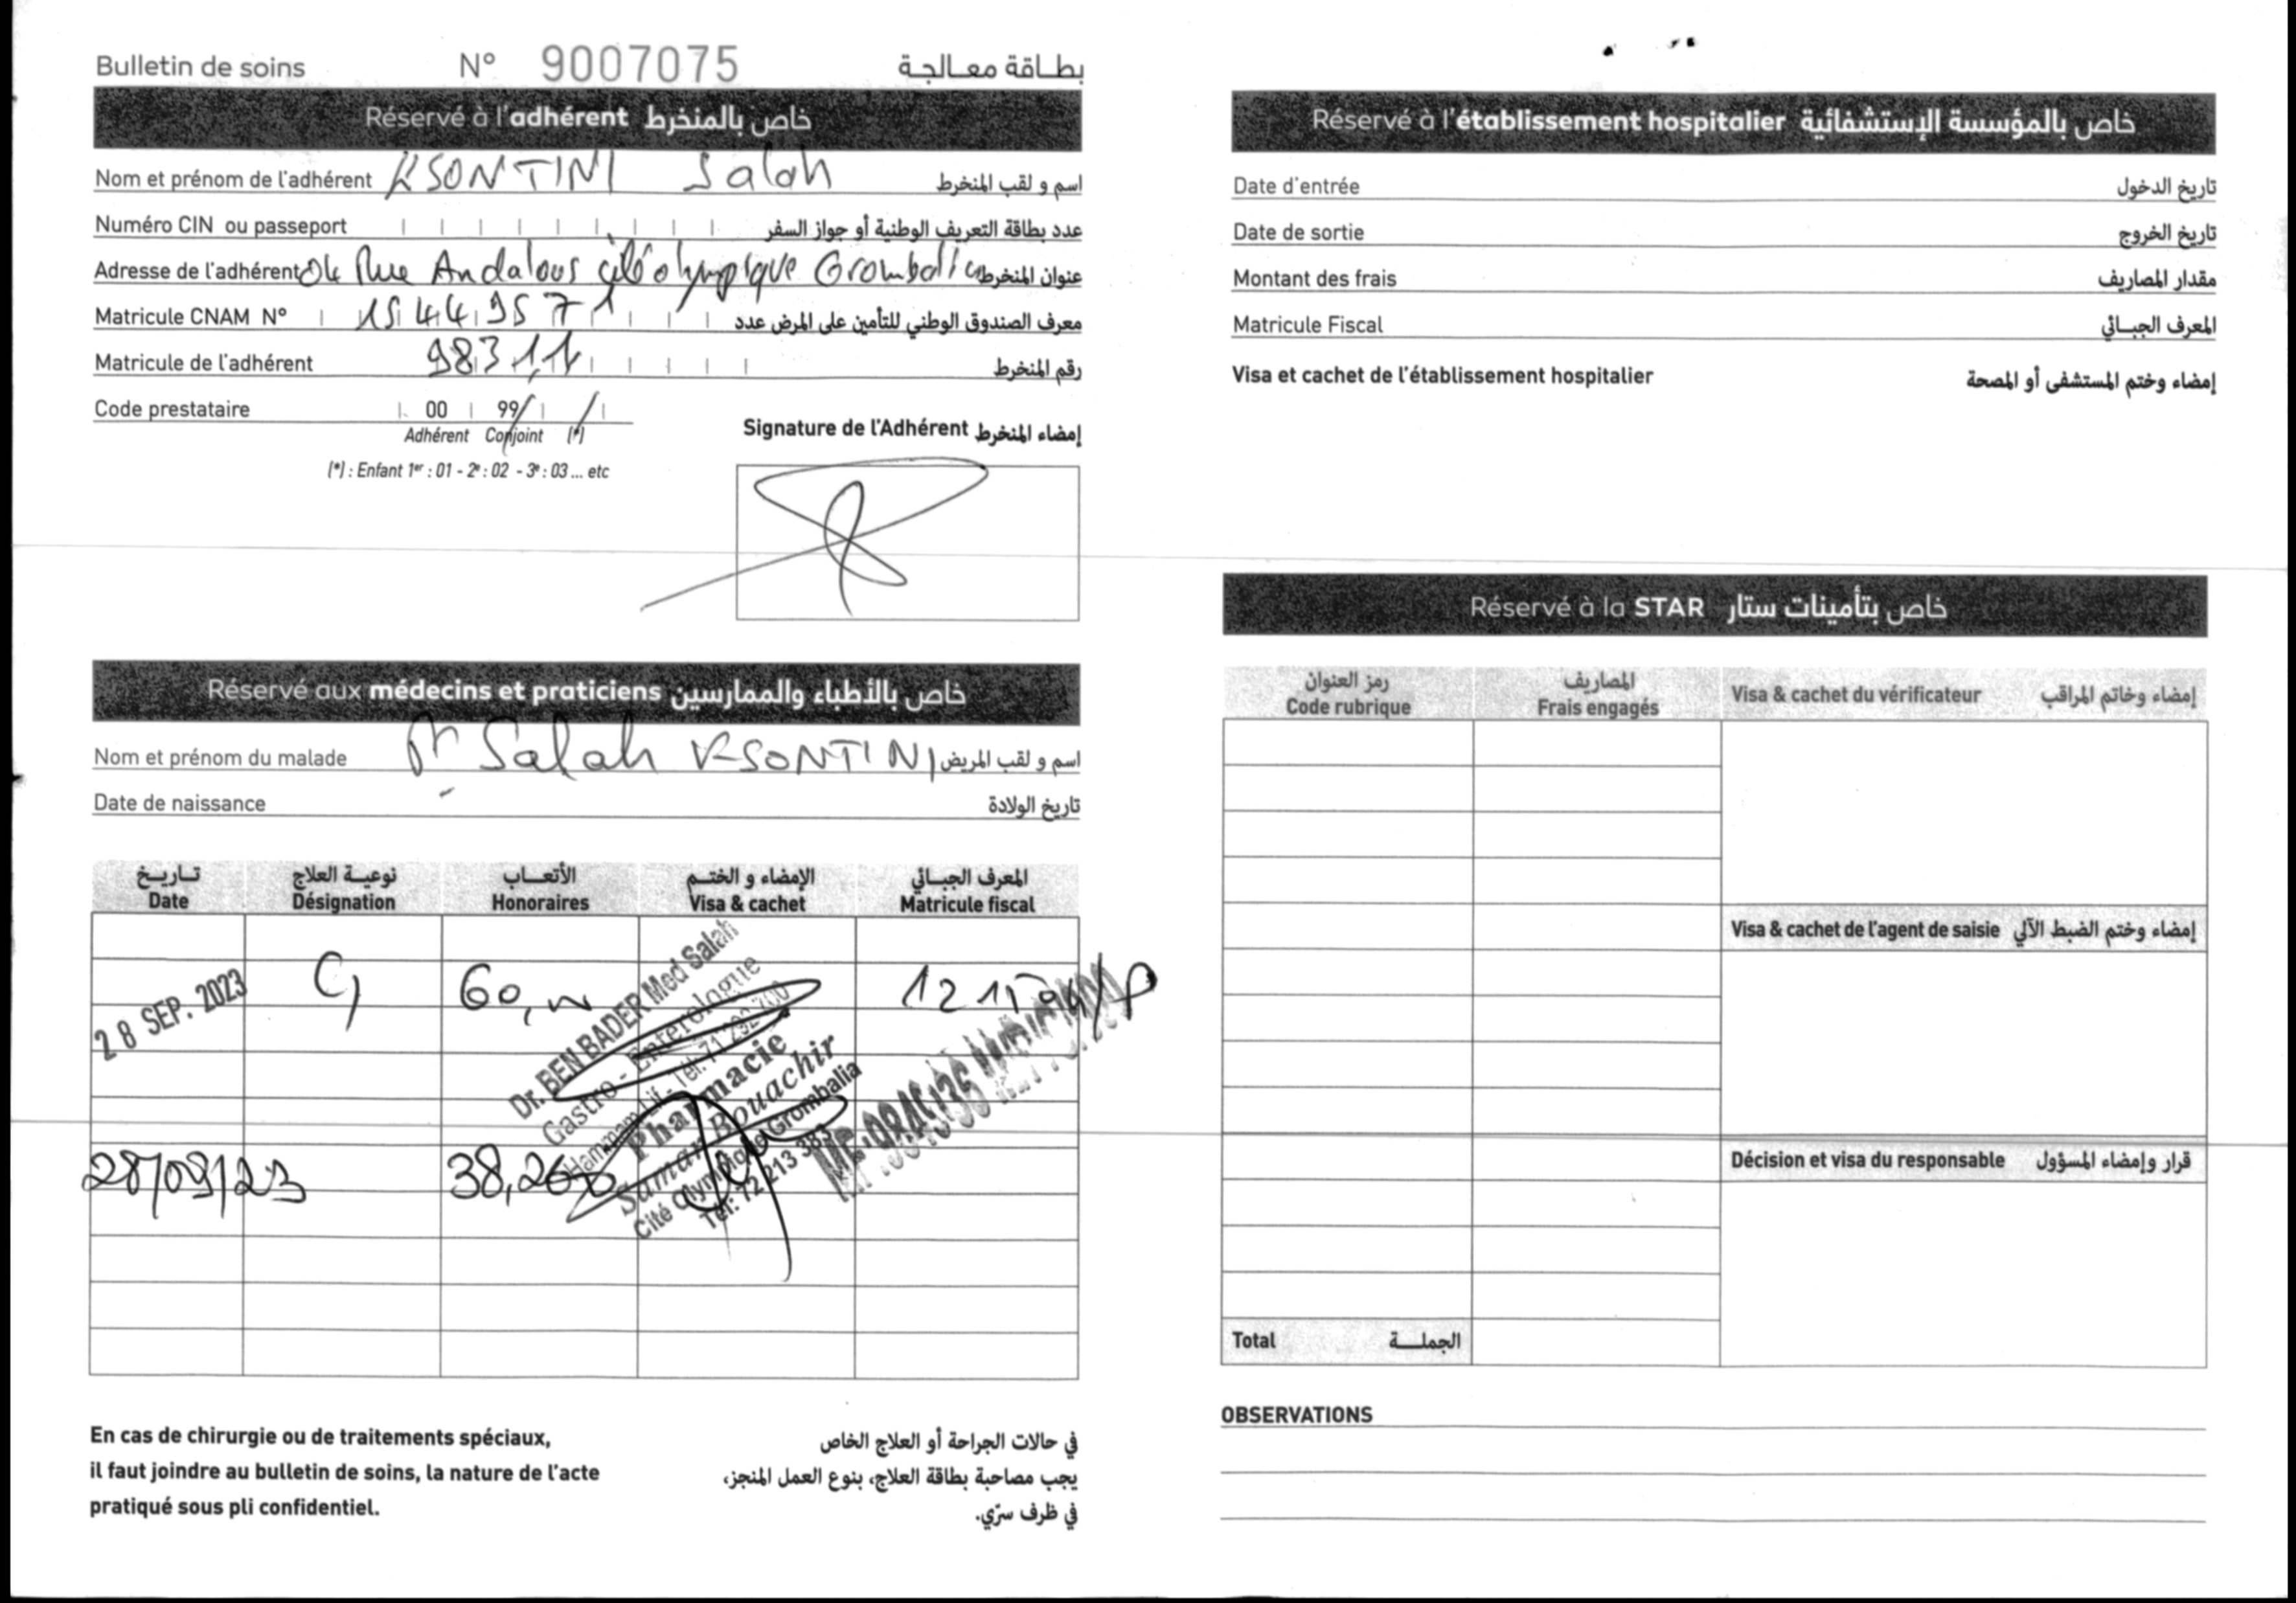 Bulletin de soins N° 9007075 بطاقة معالجة
Réservé à l'adhérent خاص بالمنخرط
Nom et prénom de l'adhérent KSONTINI Salah اسم و لقب المنخرط
Numéro CIN ou passeport عدد بطاقة التعريف الوطنية أو جواز السفر
Adresse de l'adhérent 04 Rue Andalous cité olympique Grombalia عنوان المنخرط
Matricule CNAM N° 15449571 معرف الصندوق الوطني للتأمين على المرض عدد
Matricule de l'adhérent 98311 رقم المنخرط
Code prestataire 00 99
Adhérent Conjoint (*)
(*) : Enfant 1er : 01 - 2e : 02 - 3e : 03 ... etc
Signature de l'Adhérent إمضاء المنخرط
Réservé aux médecins et praticiens خاص بالأطباء والممارسين
Nom et prénom du malade Mr Salah KSONTINI اسم و لقب المريض
Date de naissance تاريخ الولادة
تاريخ نوعية العلاج الأتعاب الإمضاء و الختم المعرف الجبائي
Date Désignation Honoraires Visa & cachet Matricule fiscal
28 SEP. 2023 60,
Dr. BEN BADER Med Salah
Gastro - Enterologue
Hammam Lif - Tél: 71 292 700
28/09/23 38,260
Pharmacie
Samar Bouachir
Cité Olympique Grombalia
Tél: 72 213 383
En cas de chirurgie ou de traitements spéciaux,
il faut joindre au bulletin de soins, la nature de l'acte
pratiqué sous pli confidentiel.
في حالات الجراحة أو العلاج الخاص
يجب مصاحبة بطاقة العلاج، بنوع العمل المنجز،
في ظرف سرّي.
Réservé à l'établissement hospitalier خاص بالمؤسسة الإستشفائية
Date d'entrée تاريخ الدخول
Date de sortie تاريخ الخروج
Montant des frais مقدار المصاريف
Matricule Fiscal المعرف الجبائي
Visa et cachet de l'établissement hospitalier إمضاء وختم المستشفى أو المصحة
Réservé à la STAR خاص بتأمينات ستار
رمز العنوان المصاريف
Code rubrique Frais engagés Visa & cachet du vérificateur إمضاء وخاتم المراقب
Visa & cachet de l'agent de saisie إمضاء وختم الضبط الآلي
Décision et visa du responsable قرار وإمضاء المسؤول
Total الجملة
OBSERVATIONS